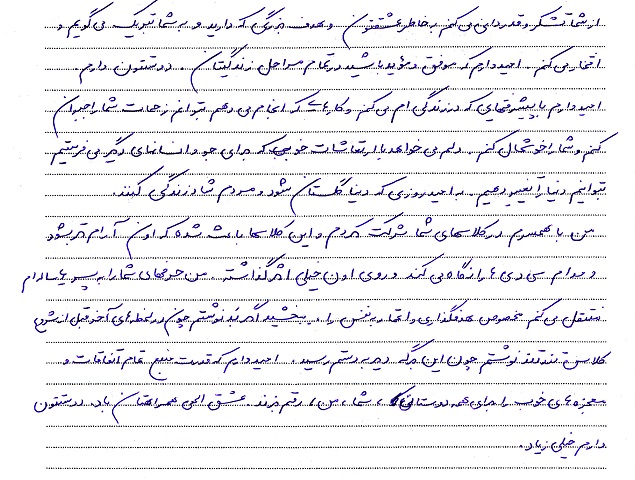 از شما تشکر و قدردانی می کنم به خاطر عشقتون و هدف بزرگی که دارید و به شما تبریک می گویم و
افتخار می کنم . امیدوارم که موفق و مؤید باشید در تمام مراحل زندگیتان . دوستتون دارم .
امیدوارم با پیشرفتهای که در زندگی ام می کنم و کارهایی که انجام می دهم بتوانم زحمات شما را جبران
کنم و شما را خوشحال کنم . دلم می خواهد با ارتعاشات خوبی که برای جو و انسانهای دیگر می فرستیم
بتوانیم دنیا را تغییر دهیم . به امید روزی که دنیا گلستان شود و مردم شاد زندگی کنند .
من با همسرم در کلاسهای شما شرکت کردم و این کلاسها باعث شده که اون آرام تر بشود
و مدام سی دی ها را نگاه می کند و روی اون خیلی اثر گذاشته . من حرفهای شما را به پسر ساله ام
منتقل می کنم بخصوص هدفگذاری و اعتماد به نفس را . ببخشید اگر بد نوشتم چون در لحظه های آخر قبل از شروع
کلاس تند تند نوشتم چون این برگه دیر به دستم رسید . امیدوارم که قدرت منبع تمام اتفاقات و
معجزه های خوب را برای همه دوستان ، شما ، من ، رقم بزند . عشق الهی همراهتان باد . دوستتون
دارم خیلی زیاد .